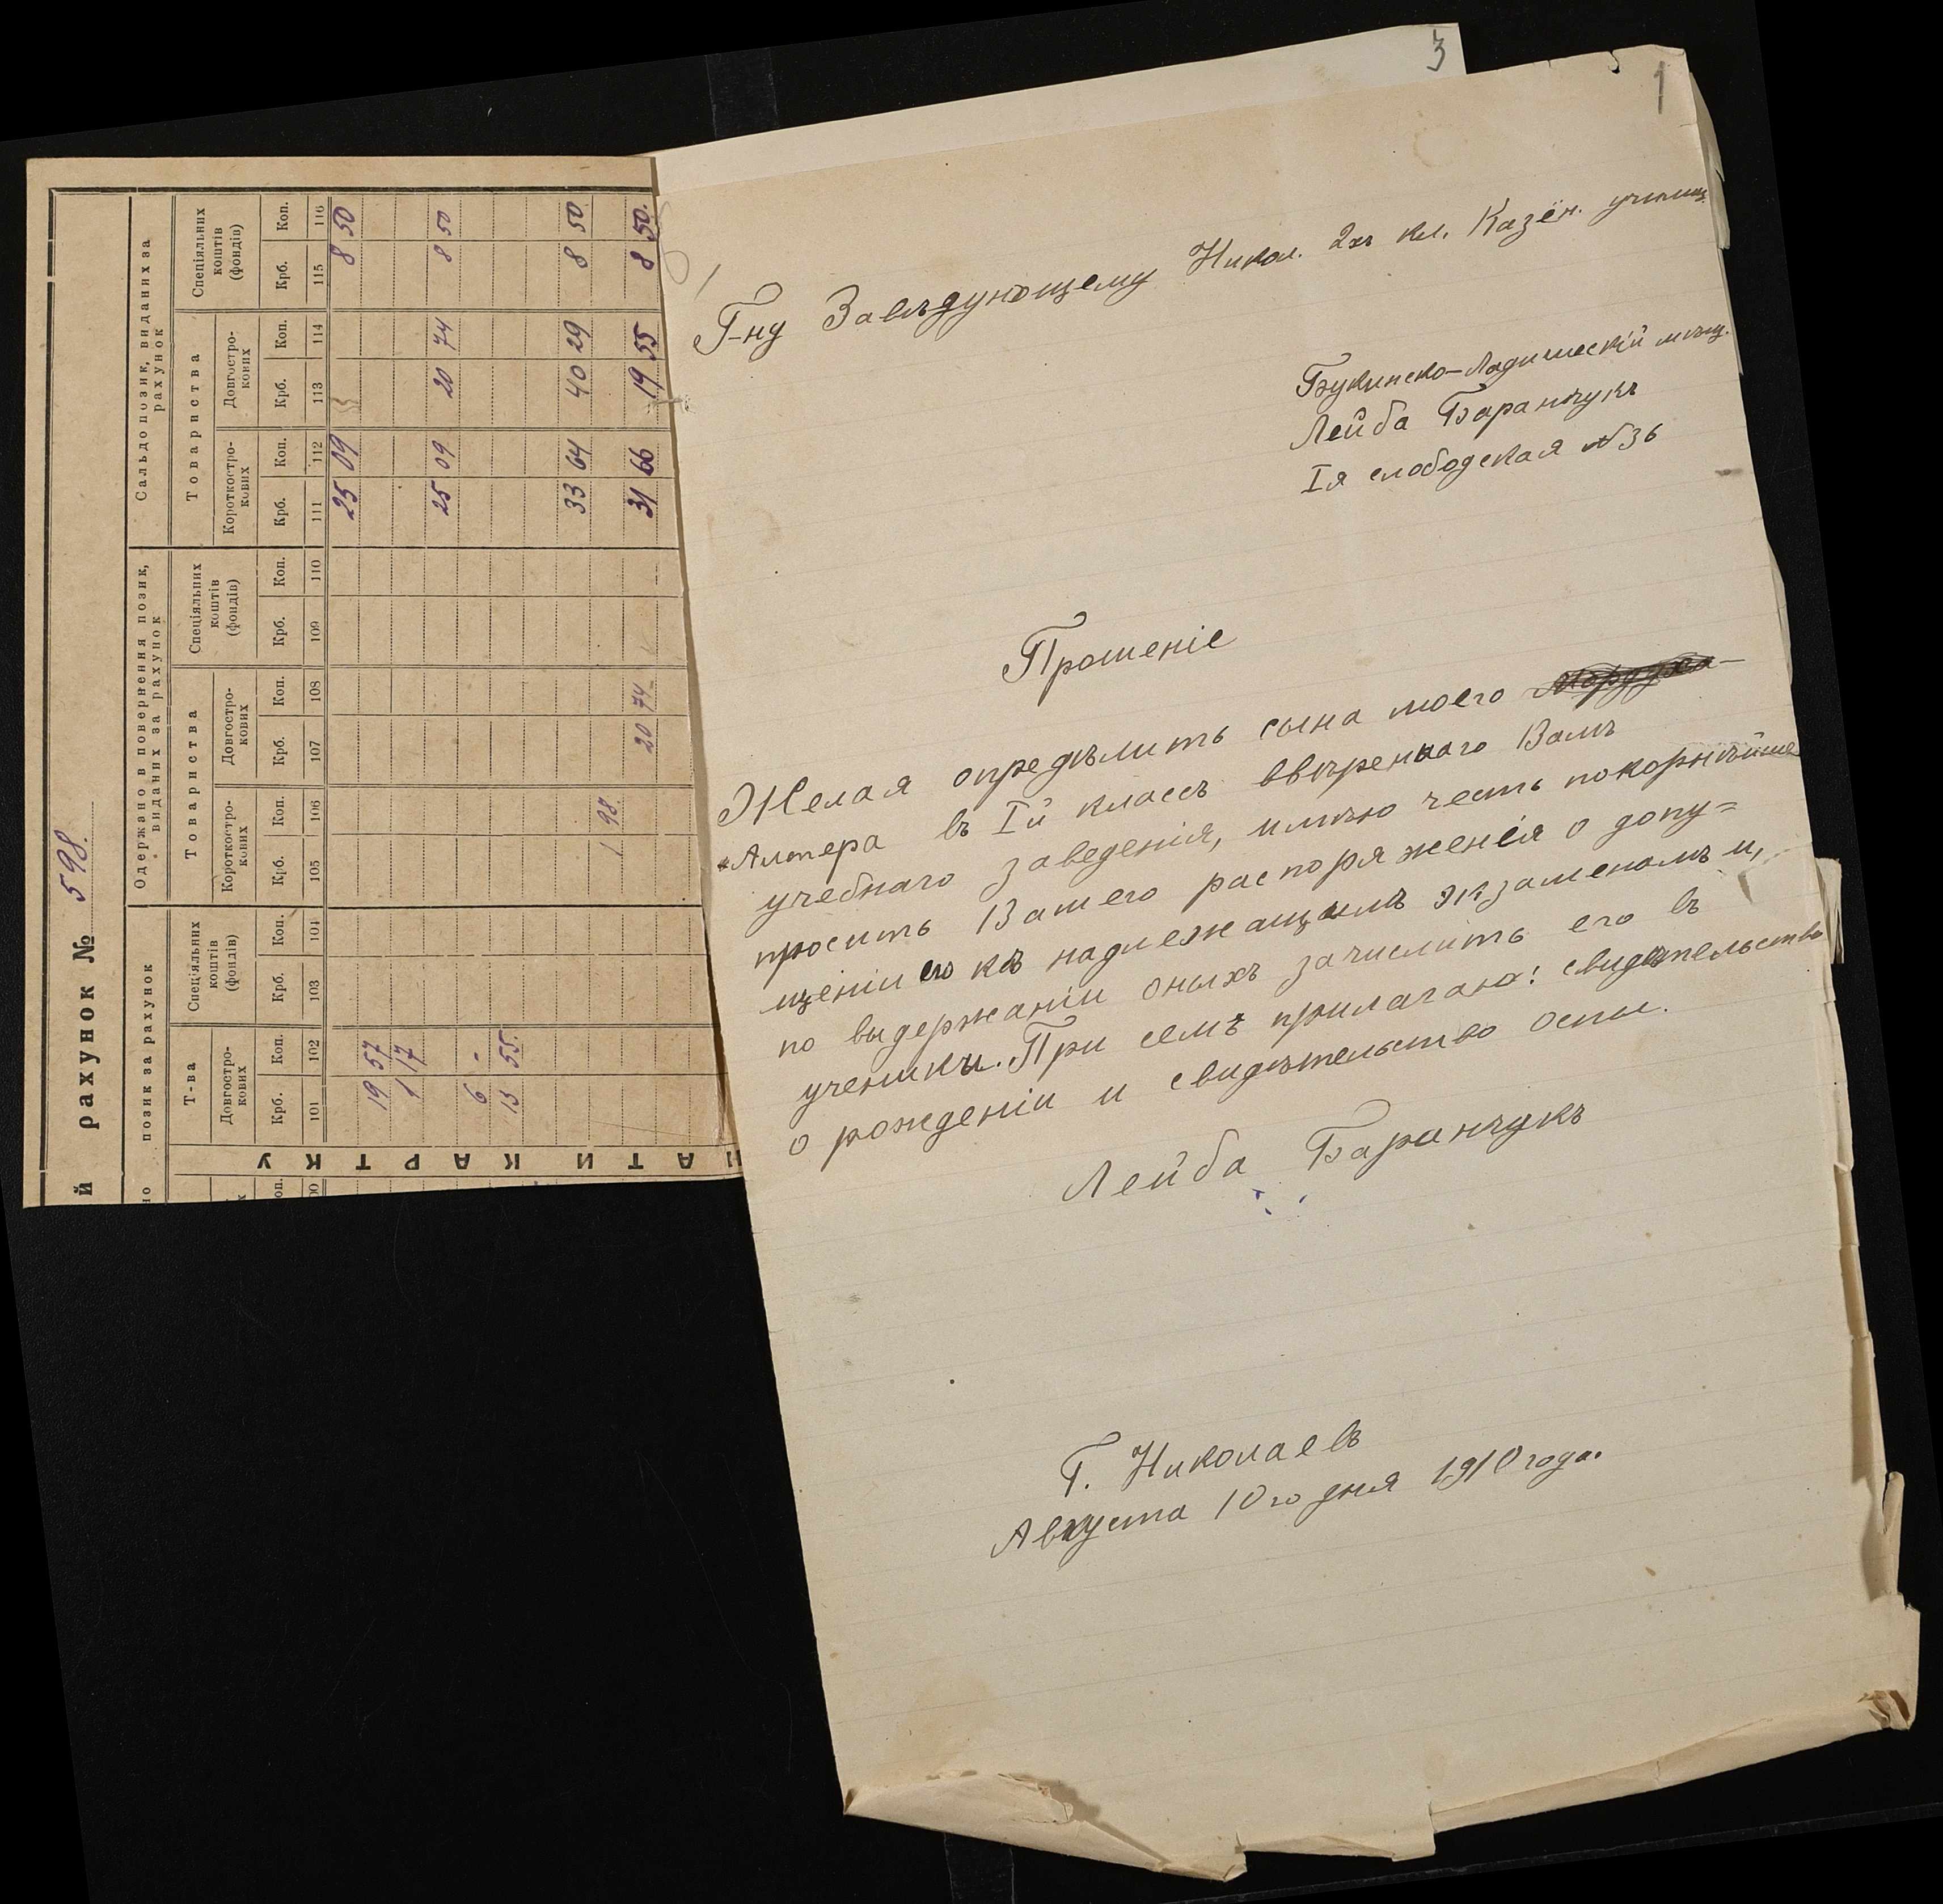 3
1
Г-ну Завѣдующему Никол. 2хъ кл. Казён. училищ.
Букинско-Ладишескій мѣщ.
Лейба Баранчукъ
Iя слободская №36
Прошеніе
Желая опредѣлить сына моего
Алтера въ Iй классъ ввѣреннаго Вамъ
учебнаго заведенія, имѣю честь покорнѣйше
просить Вашего распоряженія о допу=
щеніи его къ надлежащимъ экзаменамъ и,
по выдержаніи оныхъ зачислить его въ
ученики. При семъ прилагаю: свидѣтельство
о рожденіи и свидѣтельство оспы.
Лейба Баранчукъ
Г. Николаевъ
Августа 10го дня 1910 года.
й рахунок № 598.
позик за рахунок
Одержано в повернення позик, виданих за рахунок
Сальдо позик, виданих за рахунок
Т-ва
Спеціяльних коштів (фондів)
Товариства
Спеціяльних коштів (фондів)
Товариства
Спеціяльних коштів (фондів)
Довгостро-кових
Короткостро-кових
Довгостро-кових
Короткостро-кових
Довгостро-кових
оп. Крб. Коп. Крб. Коп. Крб. Коп. Крб. Коп. Крб. Коп. Крб. Коп. Крб. Коп. Крб. Коп.
00 101 102 103 104 105 106 107 108 109 110 111 112 113 114 115 116
25 09 8 50
19 57
1 17
25 09 20 74 8 50
6 -
13 55
33 64 40 29 8 50
1 98
20 74 31 66 19 55 8 50.
КАРТКУ